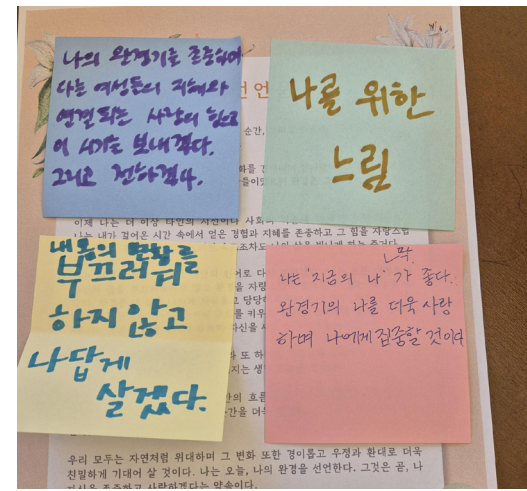 나의 완경기를 존중하며
다른 여성들의 지혜와
연결되는 사랑의 힘으로
이 시기를 보내겠다.
그리고 전하겠다.
나를 위한
느림
내 몸의 변화를
부끄러워
하지 않고
나답게
살겠다.
막
나는 '지금의 나'가 좋다.
완경기의 나를 더욱 사랑
하며 나에게 집중할 것이다
언
순간,
이제 나는 더 이상 타인의 시선이나 사회
나는 내가 걸어온 시간 속에서 얻은 경험과 지혜를 존중하고 그 힘을 자랑스럽
우리 모두는 자연처럼 위대하며 그 변화 또한 경이롭고 우정과 환대로 더욱
친밀하게 기대어 살 것이다. 나는 오늘, 나의 완경을 선언한다. 그것은 곧, 나
자신을 존중하고 사랑하겠다는 약속이다.